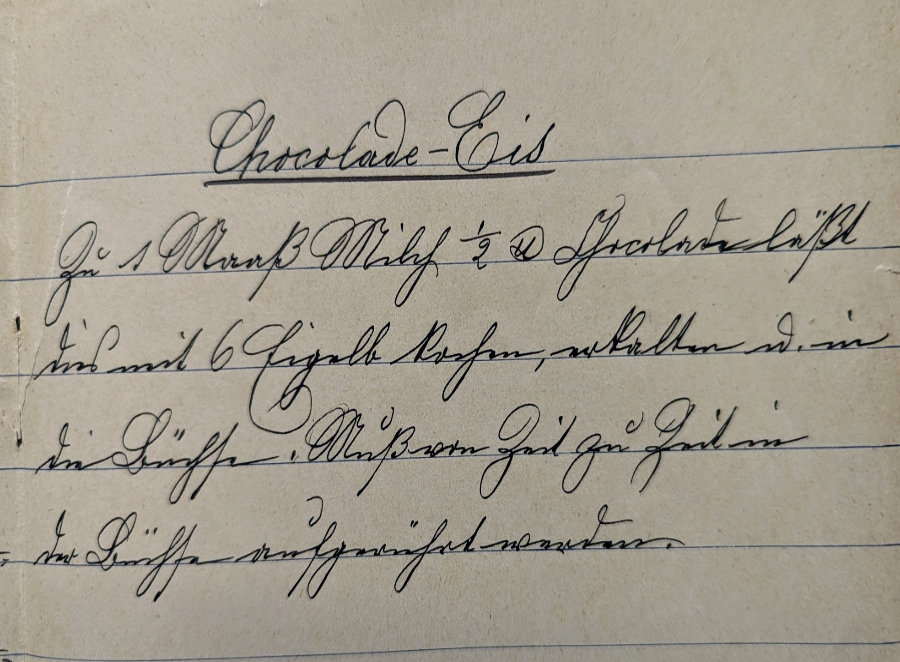 Chocolade-Eis
Zu 1 Maaß Milch ½ ℔ Chocolade läßt
dies mit 6 Eigelb kochen, erkalten u. in
die Büchse. Muß von Zeit zu Zeit in
der Büchse aufgerührt werden.